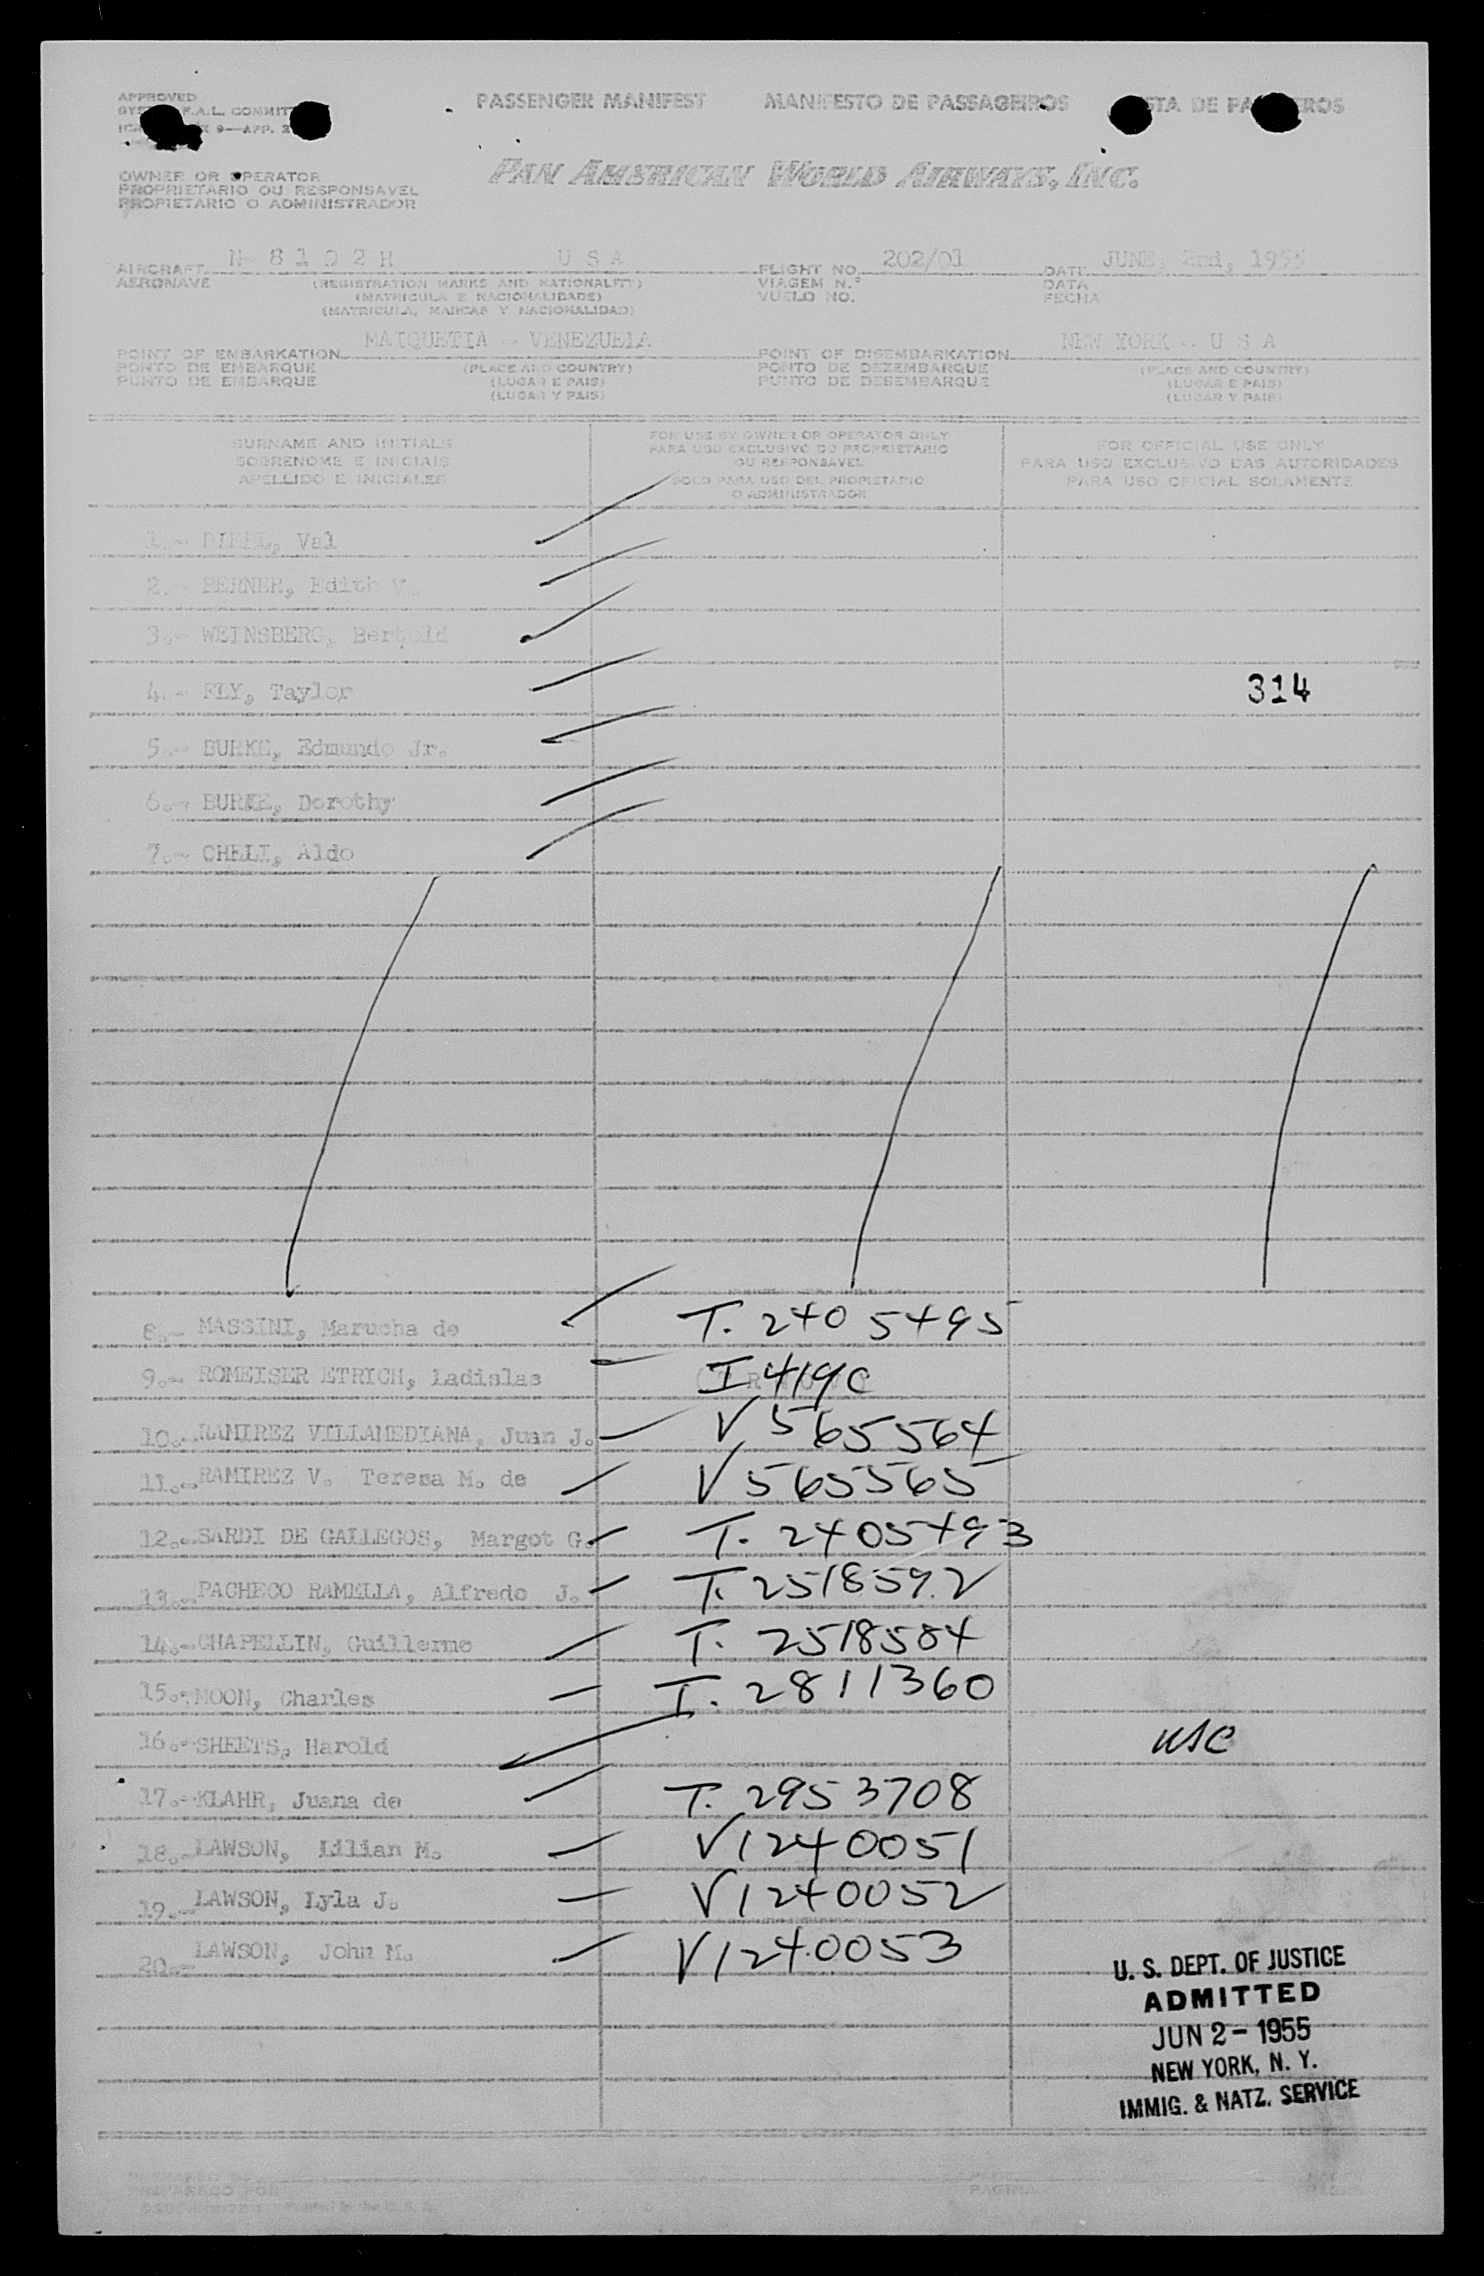 APPROVED
PASSENGER MANIFEST MANIFESTO DE PASSAGEIROS
F.A.L. COMMIT
9—APP. 2
PAN AMERICAN WORLD AIRWAYS, INC.
OWNER OR OPERATOR
PROPRIETARIO OU RESPONSAVEL
PROPIETARIO O ADMINISTRADOR
AIRCRAFT N- 8 1 0 2 H U S A FLIGHT NO. 202/01 DATE JUNE, 2nd, 1955
AERONAVE (REGISTRATION MARKS AND NATIONALITY) VIAGEM N.º DATA
(MATRICULA E NACIONALIDADE) VUELO NO. FECHA
(MATRICULA, MARCAS Y NACIONALIDAD)
POINT OF EMBARKATION MAIQUETIA - VENEZUELA POINT OF DISEMBARKATION NEW YORK - U S A
PONTO DE EMBARQUE (PLACE AND COUNTRY) PONTO DE DEZEMBARQUE (PLACE AND COUNTRY)
PUNTO DE EMBARQUE (LUGAR E PAIS) PUNTO DE DESEMBARQUE (LUGAR E PAIS)
(LUGAR Y PAIS) (LUGAR Y PAIS)
SURNAME AND INITIALS FOR USE BY OWNER OR OPERATOR ONLY FOR OFFICIAL USE ONLY
SOBRENOME E INICIAIS PARA USO EXCLUSIVO DO PROPRIETARIO PARA USO EXCLUSIVO DAS AUTORIDADES
OU RESPONSAVEL
APELLIDO E INICIALES SOLO PARA USO DEL PROPIETARIO PARA USO OFICIAL SOLAMENTE
O ADMINISTRADOR
1.- Val
2.- BERNER, Edith V.
3.- WEINSBERG, Bertold
4.- FLY, Taylor 314
5.- BURKE, Edmundo Jr.
6.- BURKE, Dorothy
7.- CHELI, Aldo
8.- MASSINI, Marucha de T. 2405495
9.- ROMEISER ETRICH, Ladislas I 4190
10.- RAMIREZ VILLAMEDIANA, Juan J. V 565564
11.- RAMIREZ V. Teresa M. de V 565565
12.- SARDI DE GALLEGOS, Margot G. T. 2405493
13.- PACHECO RAMELLA, Alfredo J. T. 2518592
14.- CHAPELLIN, Guillermo T. 2518584
15.- MOON, Charles I. 2811360
16.- SHEETS, Harold USC
17.- KLAHR, Juana de T. 2953708
18.- LAWSON, Lilian M. V1240051
19.- LAWSON, Lyla J. V1240052
20.- LAWSON, John M. V1240053
U. S. DEPT. OF JUSTICE
ADMITTED
JUN 2 - 1955
NEW YORK, N. Y.
IMMIG. & NATZ. SERVICE
PAGINA
Printed in the U. S. A.